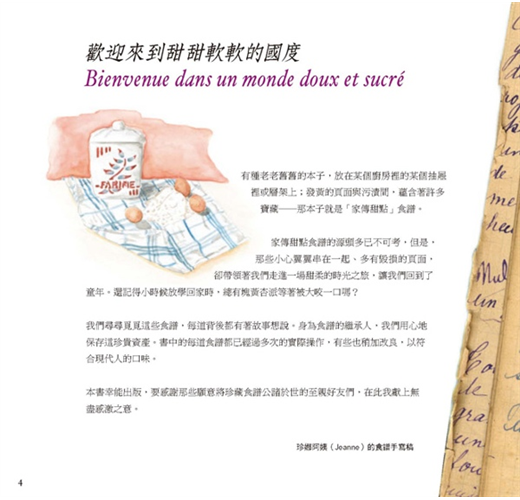 歡迎來到甜甜軟軟的國度
Bienvenue dans un monde doux et sucré
FARINE
有種老老舊舊的本子，放在某個廚房裡的某個抽屜
裡或層架上；發黃的頁面與污漬間，蘊含著許多
寶藏——那本子就是「家傳甜點」食譜。
家傳甜點食譜的源頭多已不可考，但是，
那些小心翼翼串在一起、多有毀損的頁面，
卻帶領著我們走進一場甜柔的時光之旅，讓我們回到了
童年。還記得小時候放學回家時，總有塊黃杏派等著被大咬一口嗎？
我們尋尋覓覓這些食譜，每道背後都有著故事想說。身為食譜的繼承人，我們用心地
保存這珍貴資產。書中的每道食譜都已經過多次的實際操作，有些也稍加改良，以符
合現代人的口味。
本書幸能出版，要感謝那些願意將珍藏食譜公諸於世的至親好友們，在此我獻上無
盡感激之意。
珍娜阿姨（Jeanne）的食譜手寫稿
4
de
me
un
de
gra
un